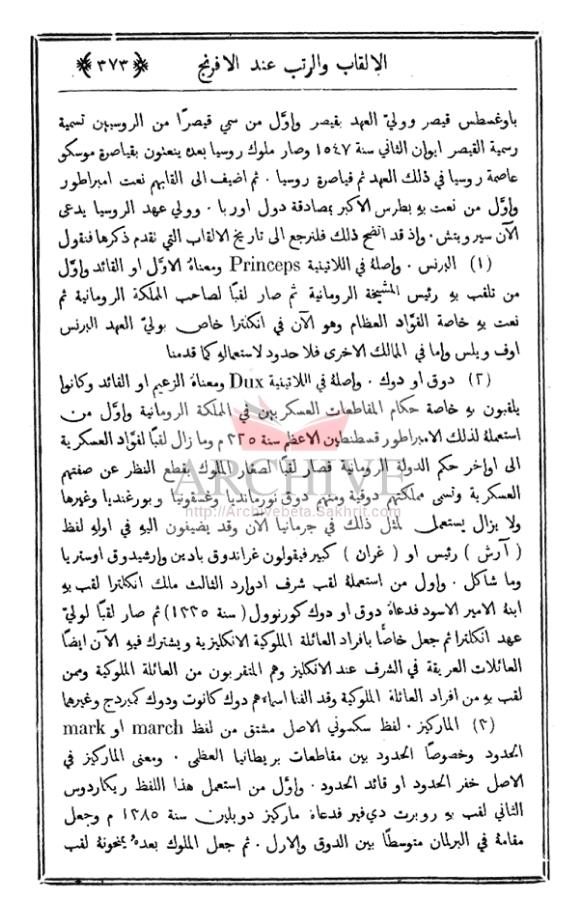 الالقاب والرتب عند الافرنج ﴿٣٧٣﴾
باوغسطس قيصر ووليّ العهد بقيصر واوَّل من سمي قيصرًا من الروسيين تسمية
رسمية القيصر ايوان الثاني سنة ١٥٤٧ وصار ملوك روسيا بعده ينعتون بقياصرة موسكو
عاصمة روسيا في ذلك العهد ثم قياصرة روسيا . ثم اضيف الى القابهم نعت امبراطور
واوَّل من نعت به بطرس الاكبر بمصادقة دول اوربا . وولي عهد الروسيا يدعى
الآن سيرويتش . واذ قد اتضح ذلك فلنرجع الى تاريخ الالقاب التي تقدم ذكرها فنقول
(١) البرنس . واصلهُ في اللاتينية Princeps ومعناهُ الاوَّل او القائد واوَّل
من تلقب به رئيس المشيخة الرومانية ثم صار لقبًا لصاحب المملكة الرومانية ثم
نعت به خاصة القوَّاد العظام وهو الآن في انكلترا خاص بوليّ العهد البرنس
اوف ويلس واما في الممالك الاخرى فلا حدود لاستعمالهِ كما قدمنا
(٢) دوق او دوك . واصلهُ في اللاتينية Dux ومعناهُ الزعيم او القائد وكانوا
يلقبون به خاصة حكام المقاطعات العسكريين في المملكة الرومانية واوَّل من
استعملهُ لذلك الامبراطور قسطنطين الاعظم سنة ٣٣٥ م وما زال لقبًا لقوَّاد العسكرية
الى اواخر حكم الدولة الرومانية فصار لقبًا لصغار الملوك بقطع النظر عن صفتهم
العسكرية وتسمى مملكتهم دوقية ومنهم دوق نورمانديا وغسقونيا وبورغنديا وغيرها
ولا يزال يستعمل لمثل ذلك في جرمانيا الآن وقد يضيفون اليهِ في اولهِ لفظ
( آرش ) رئيس او ( غران ) كبير فيقولون غراندوق بادين وارشيدوق اوستريا
وما شاكل . واول من استعملهُ لقب شرف ادوارد الثالث ملك انكلترا لقب به
ابنهُ الامير الاسود فدعاهُ دوق او دوك كورنوول ( سنة ١٣٣٥ ) ثم صار لقبًا لوليّ
عهد انكلترا ثم جعل خاصًّا بافراد العائلة الملوكية الانكليزية ويشترك فيهِ الآن ايضًا
العائلات العريقة في الشرف عند الانكليز وهم المتقربون من العائلة الملوكية وممن
لقب به من افراد العائلة الملوكية وقد الفنا اسماءهم دوك كانوت ودوك كمبردج وغيرها
(٣) الماركيز . لفظ سكسوني الاصل مشتق من لفظ march او mark
الحدود وخصوصًا الحدود بين مقاطعات بريطانيا العظمى . ومعنى الماركيز في
الاصل خفر الحدود او قائد الحدود . واوَّل من استعمل هذا اللفظ ريكاردوس
الثاني لقب به روبرت دي فير فدعاهُ ماركيز دوبلين سنة ١٣٨٥ م وجعل
مقامهُ في البرلمان متوسطًا بين الدوق والارل . ثم جعل الملوك بعدهُ يمنحونهُ لقب
ARCHIVE
http://Archivebeta.Sakhrit.com